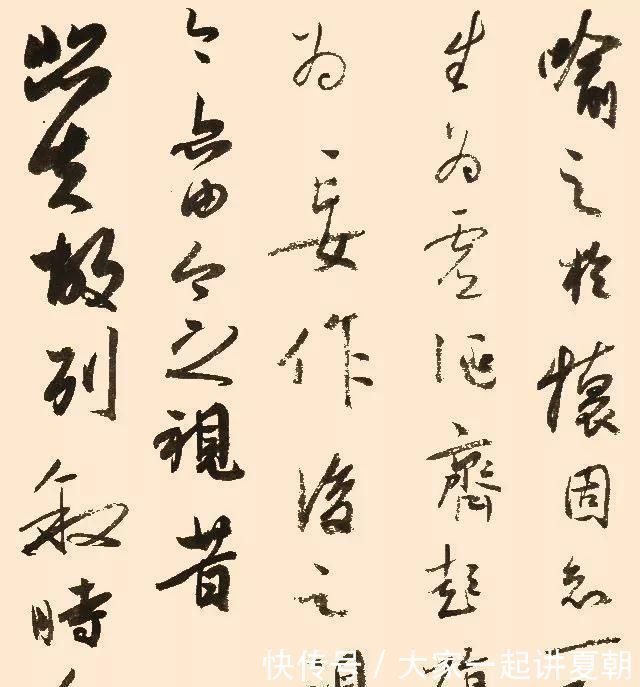 喻之於懷固知一
生為虛誕齊彭殤
為妄作後之視
今亦由今之視昔
悲夫故列叙時人
快传号 / 大家一起讲夏朝